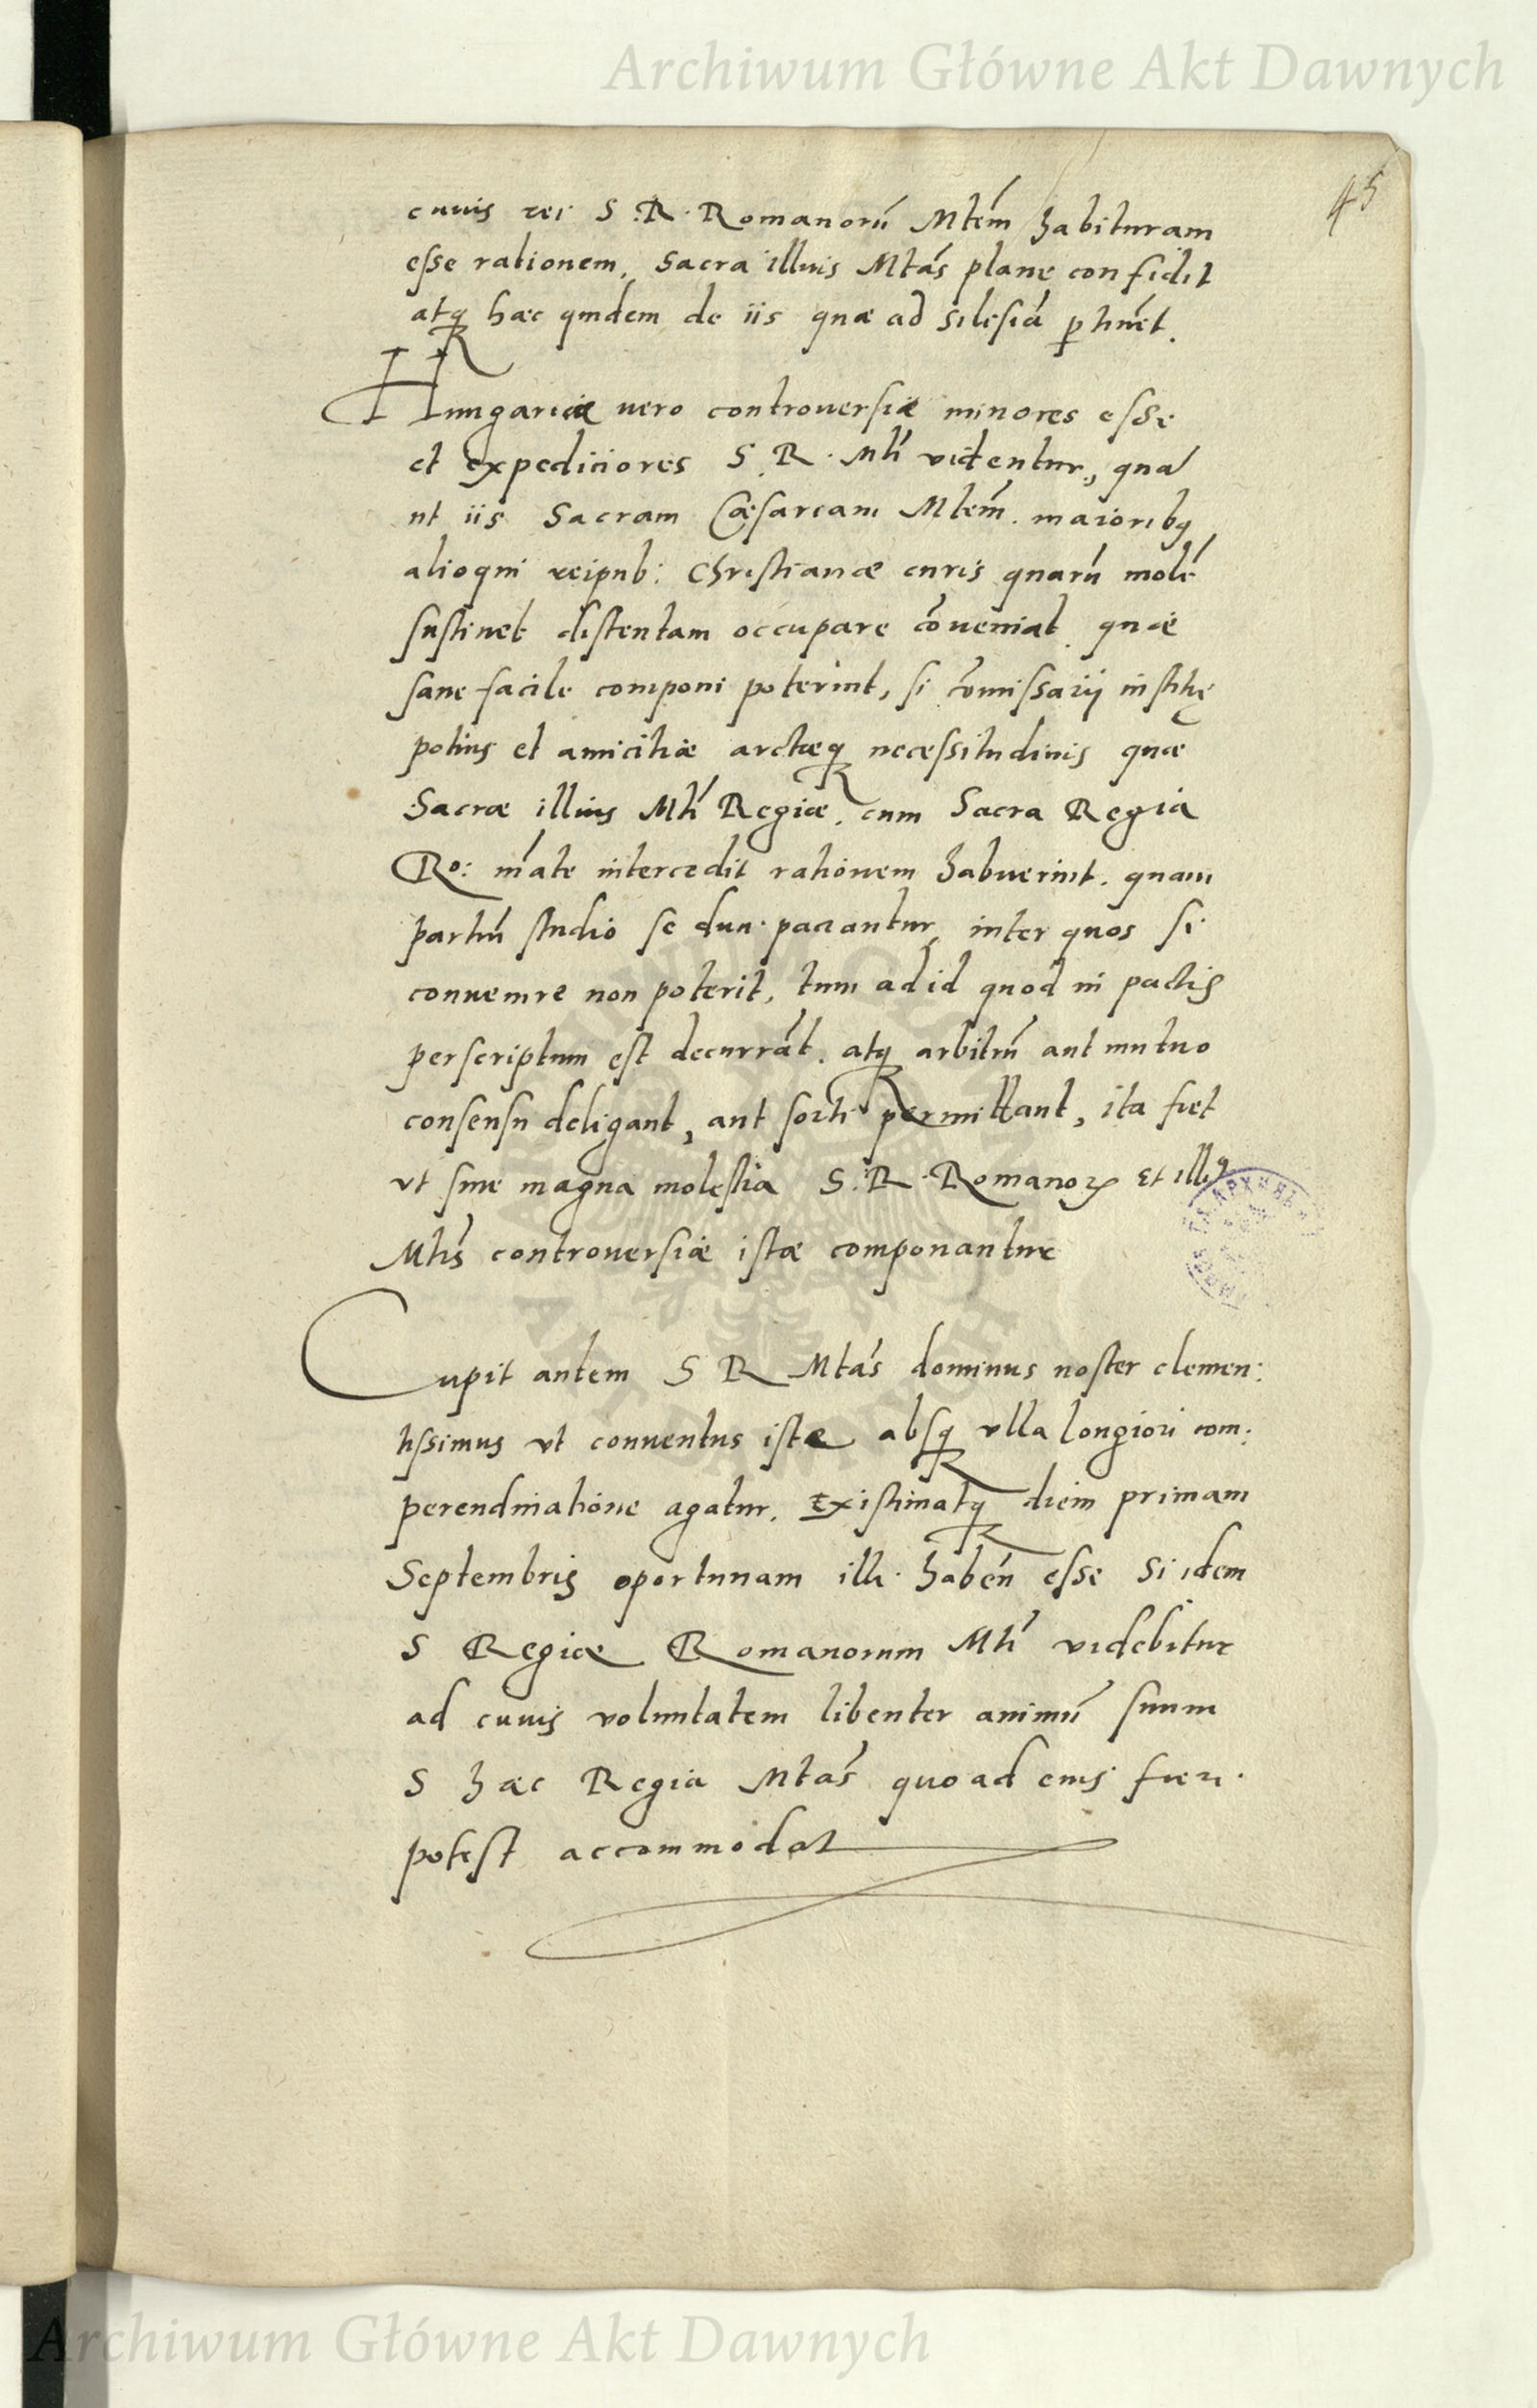 Archiwum Główne Akt Dawnych
45
cuius rei S. R. Romanorū Mtēm habituram
esse rationem, Sacra illius Mtas plane confidit
atq haec quidem de iis quae ad Silesiā ptinēt.
Hungaricae vero controuersiae minores esse
et expeditiores S. R. Mti videntur, quā
ut iis Sacram Caesaream Mtem. maiorib9
alioqui reipub: Christianae curis quarū molē
sustinet distentam occupare cōueniat. quae
sane facile componi poterint, si cōmissarij iustitię
potius et amicitiae arctaeq necessitudinis quae
Sacrae illius Mti Regiae. cum Sacra Regia
Ro: mate intercedit rationem habuerint. quam
partiū studio se duci patiantur, inter quos si
conuenire non poterit, tum ad id quod in pactis
perscriptum est decurrāt. atq arbitrū aut mutuo
consensu deligant, aut sorti permittant, ita fiet
ut sine magna molestia S. R. Romanorꝝ et illi9
Mtis controuersiae istae componantur
Cupit autem S R Mtas dominus noster clemen:
tissimus ut conuentus iste absq ulla longiori com:
perendinatione agatur. Existimatq diem primam
Septembris oportunam illi habeñ esse Si idem
S Regiae Romanorum Mti videbitur
ad cuius voluntatem libenter animū suum
S haec Regia Mtas quoad eius fieri
potest accommodat
Archiwum Główne Akt Dawnych